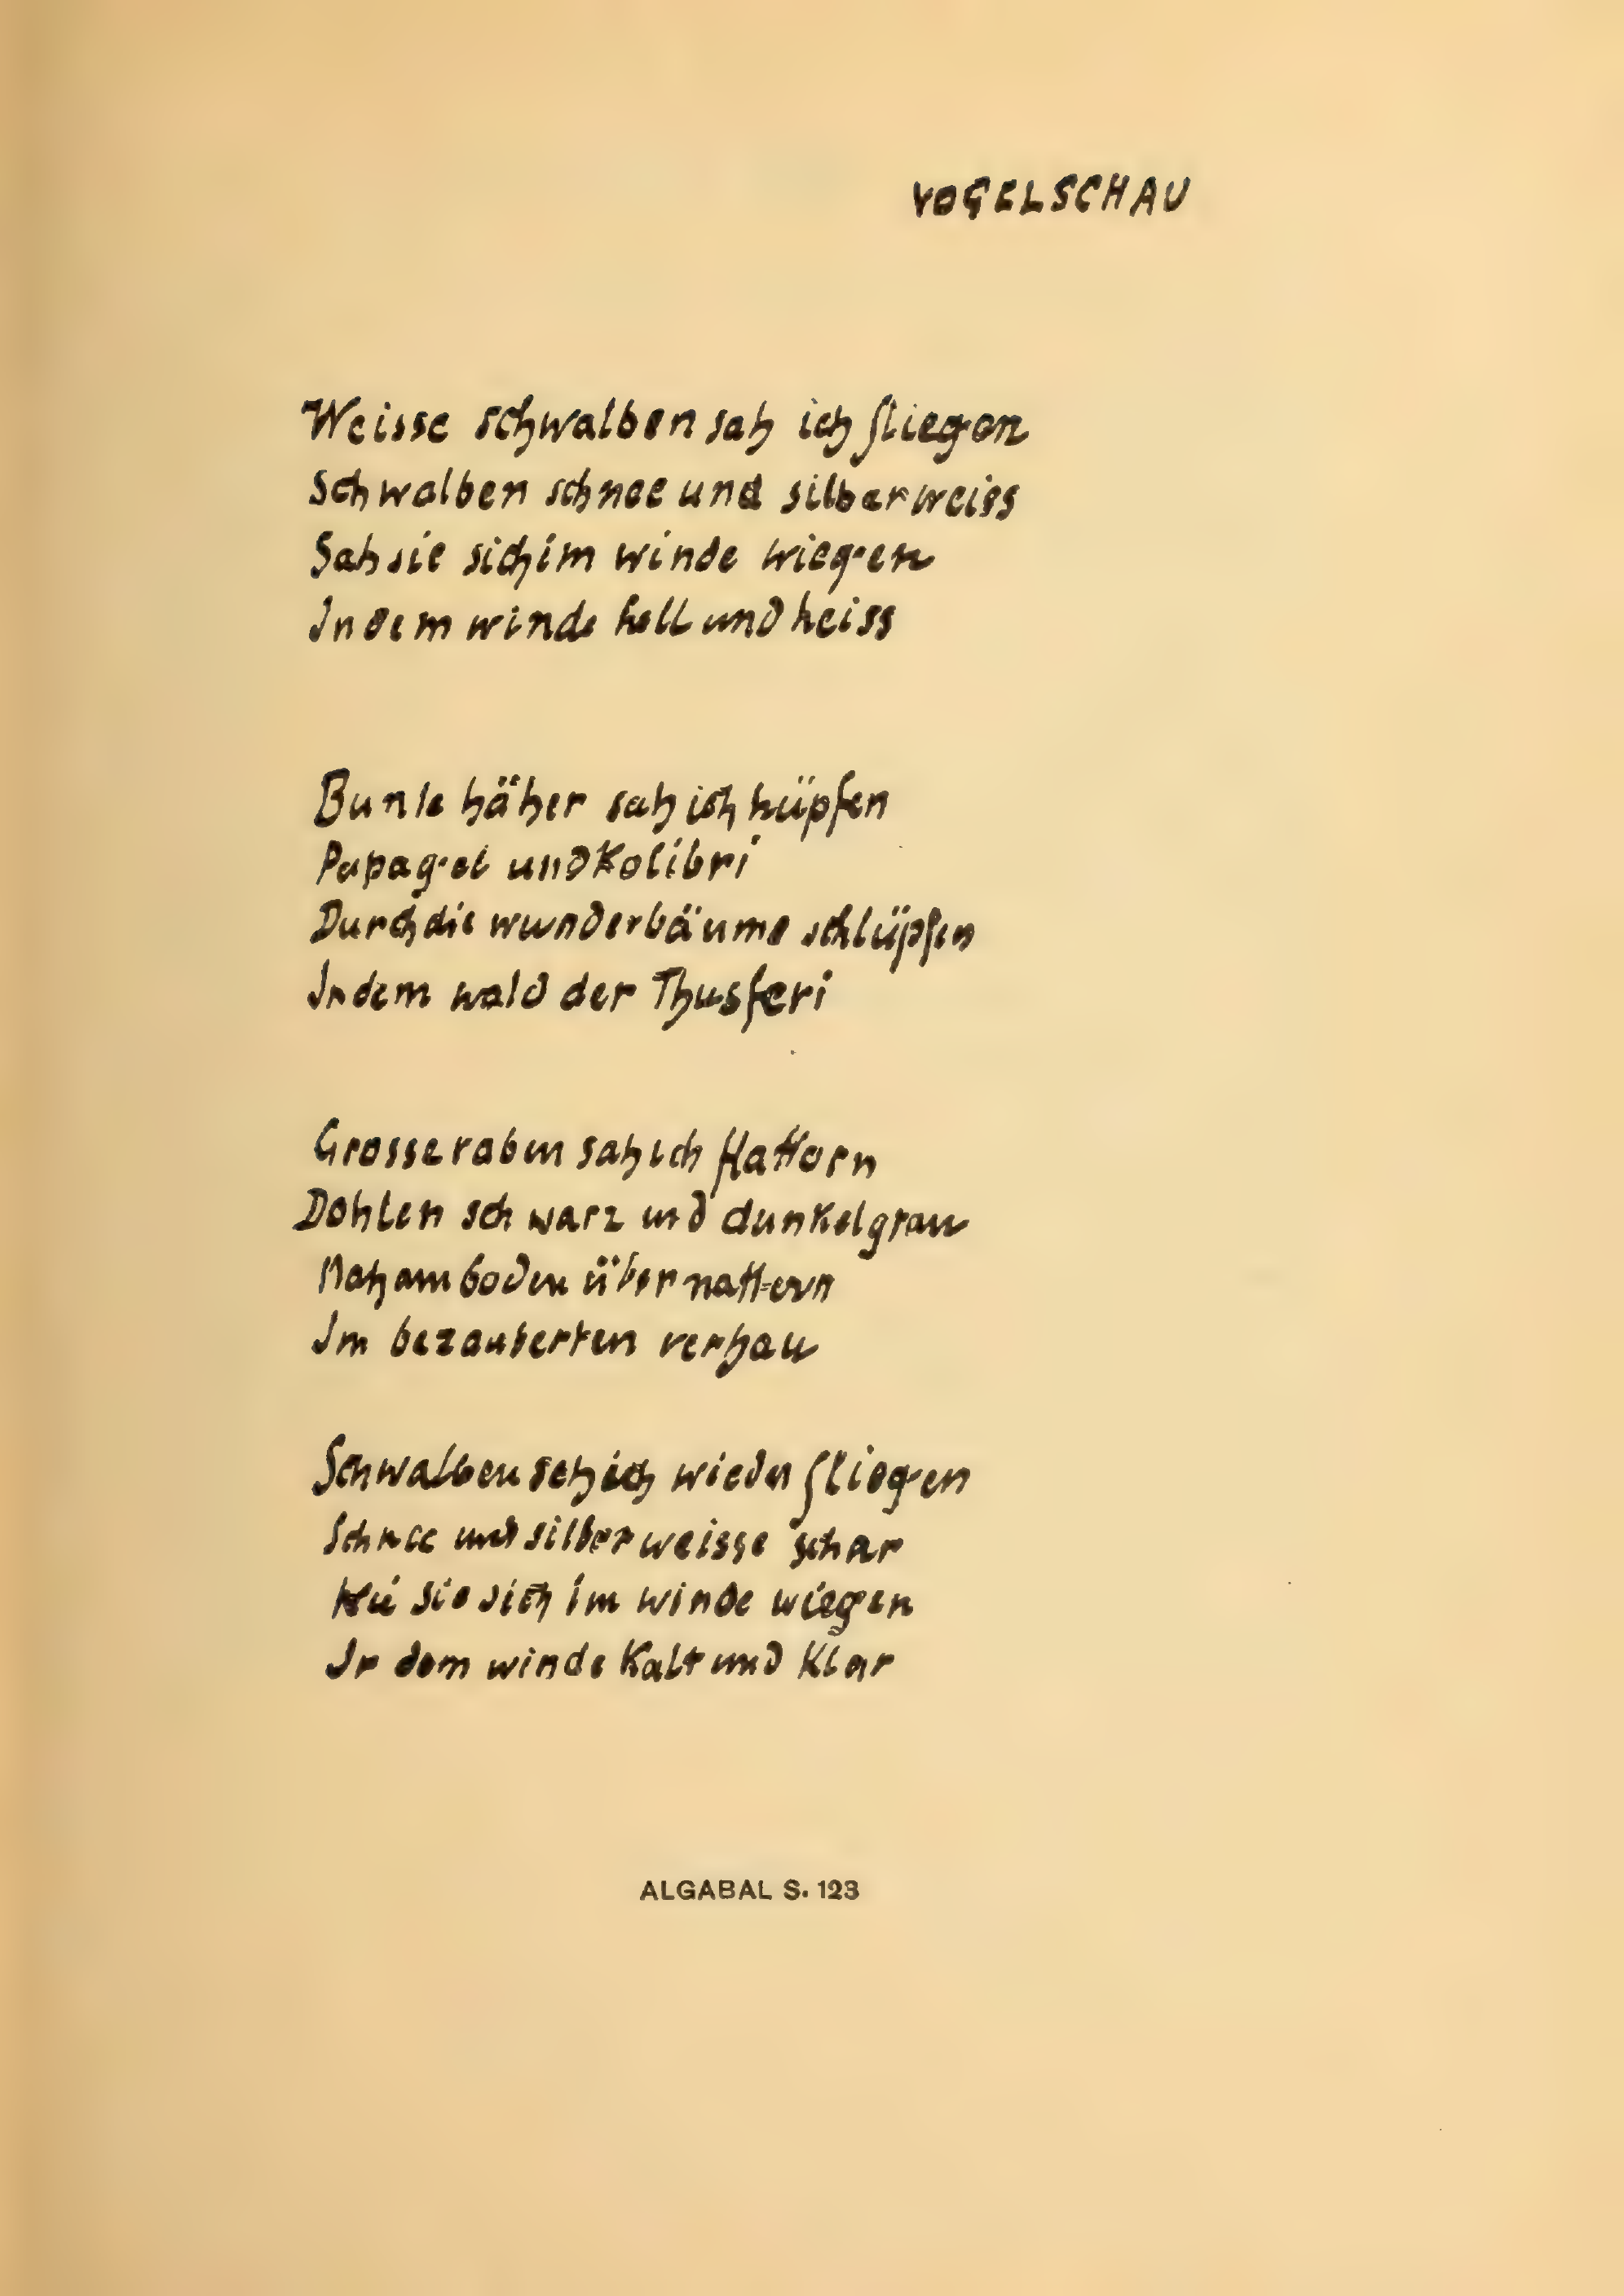 VOGELSCHAU
Weisse schwalben sah ich fliegen
Schwalben schnee und silberweiss
Sah sie sich im winde wiegen
In dem winde hell und heiss
Bunte häher sah ich hüpfen
Papagei und Kolibri
Durch die wunderbäume schlüpfen
In dem wald der Thusferi
Grosse raben sah ich flattern
Dohlen schwarz und dunkelgrau
Nah am boden über nattern
Im bezauberten verhau
Schwalben seh ich wieder fliegen
Schnee und silberweisse schar
Wie sie sich im winde wiegen
In dem winde Kalt und Klar
ALGABAL S. 123